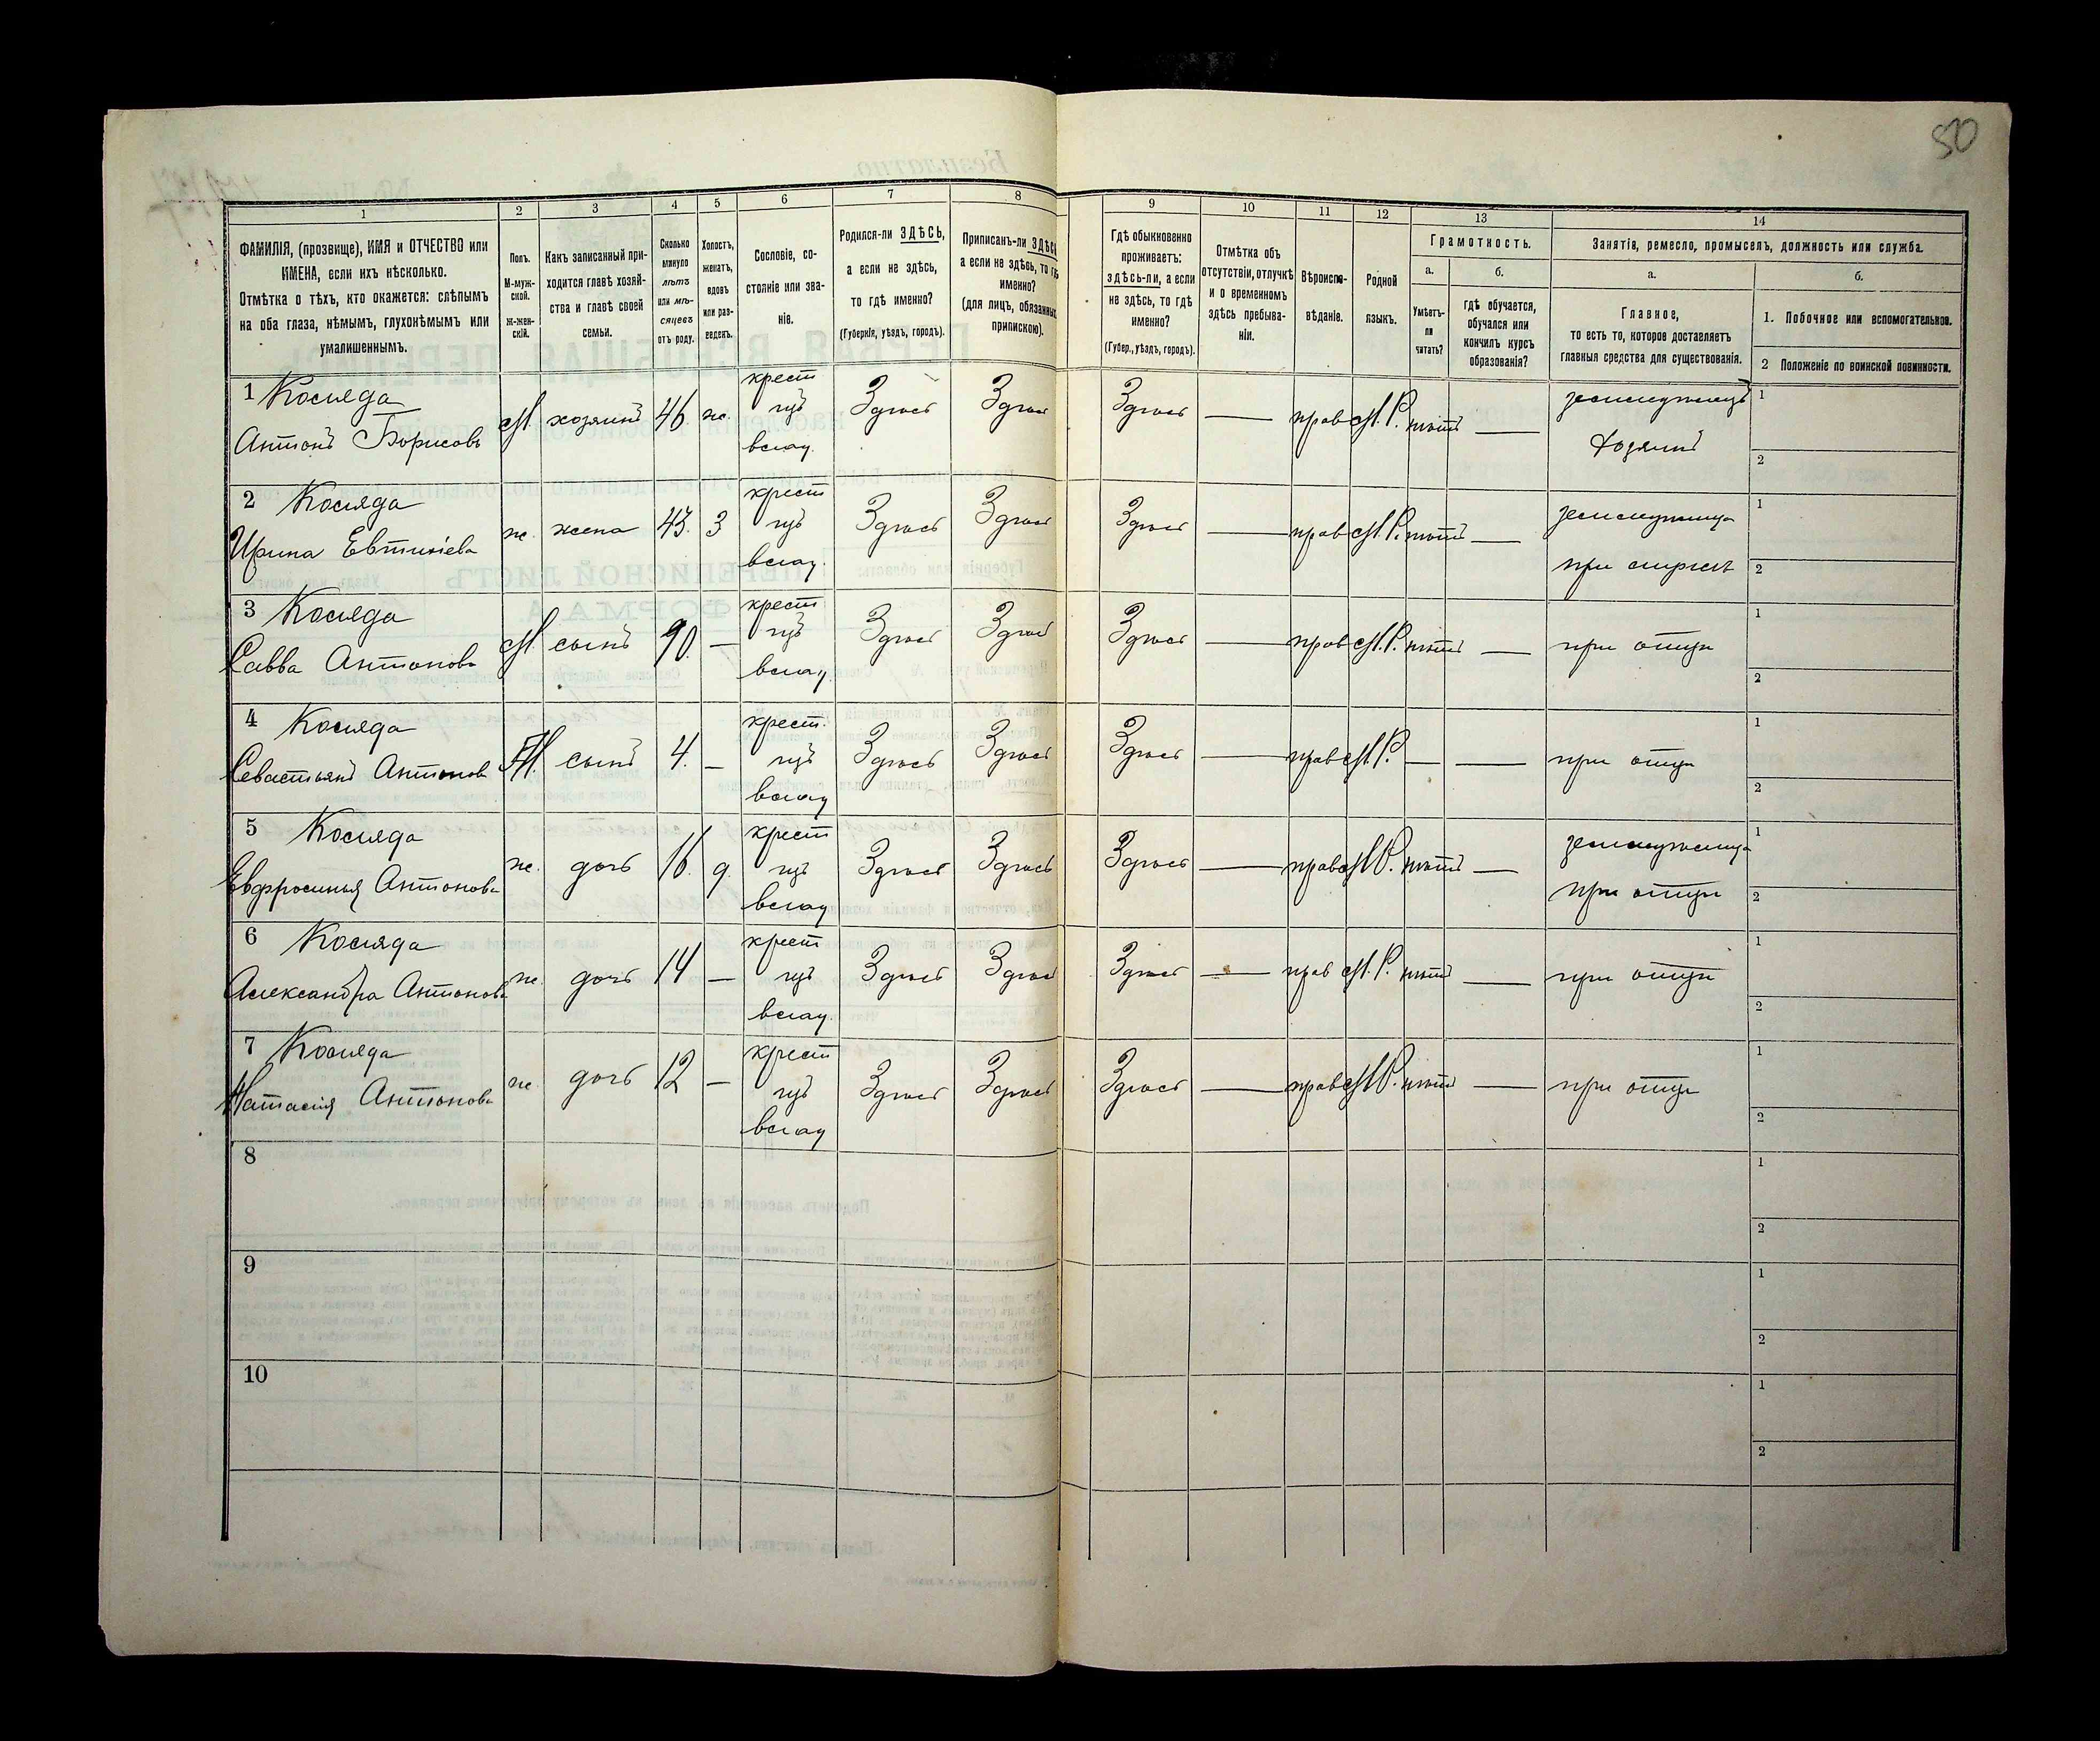 50
1 2 3 4 5 6 7 8 9 10 11 12 13 14
ФАМИЛІЯ, (прозвище), ИМЯ и ОТЧЕСТВО или
ИМЕНА, если ихъ нѣсколько.
Отмѣтка о тѣхъ, кто окажется: слѣпымъ
на оба глаза, нѣмымъ, глухонѣмымъ или
умалишеннымъ.
Полъ.
М-муж-
ской.
Ж-жен-
скій.
Какъ записанный при-
ходится главѣ хозяй-
ства и главѣ своей
семьи.
Сколько
минуло
лѣтъ
или мѣ-
сяцевъ
отъ роду.
Холостъ,
женатъ,
вдовъ
или раз-
веденъ.
Сословіе, со-
стояніе или зва-
ніе.
Родился-ли ЗДѢСЬ,
а если не здѣсь,
то гдѣ именно?
(Губернія, уѣздъ, городъ).
Приписанъ-ли ЗДѢСЬ
а если не здѣсь, то гдѣ
именно?
(для лицъ, обязанныхъ
припискою).
Гдѣ обыкновенно
проживаетъ:
здѣсь-ли, а если
не здѣсь, то гдѣ
именно?
(Губер., уѣздъ, городъ).
Отмѣтка объ
отсутствіи, отлучкѣ
и о временномъ
здѣсь пребыва-
ніи.
Вѣроиспо-
вѣданіе.
Родной
языкъ.
Грамотность.
а.
Умѣетъ-
ли
читать?
б.
Гдѣ обучается,
обучался или
кончилъ курсъ
образованія?
Занятія, ремесло, промыселъ, должность или служба.
а.
Главное,
то есть то, которое доставляетъ
главныя средства для существованія.
б.
1. Побочное или вспомогательное.
2 Положеніе по воинской повинности.
1 Косляда крест земледѣлецъ 1
Антонъ Борисовъ М. хозяинъ 46. ж. Здѣсь Здѣсь Здѣсь — прав М.Р. нѣтъ — хозяинъ 2
2 Косляда крест 1
Ирина Евтихіева ж. жена 43. З Здѣсь Здѣсь Здѣсь — прав М.Р. нѣтъ — при 2
3 Косляда крест 1
Савва Антоновъ М. сынъ — Здѣсь Здѣсь Здѣсь — прав М.Р. нѣтъ — при отцѣ 2
4 Косляда крест. 1
Севастьянъ Антонов М. сынъ 4. — Здѣсь Здѣсь Здѣсь — прав М.Р. — — при отцѣ 2
5 Косляда крест 1
Евфросинья Антонова ж. дочь 16. д. Здѣсь Здѣсь Здѣсь — прав М.Р. нѣтъ — при отцѣ 2
6 Косляда крест 1
Александра Антонова ж. дочь 14 — Здѣсь Здѣсь Здѣсь — прав М.Р. нѣтъ — при отцѣ 2
7 Косляда крест 1
Антонова ж. дочь 12 — Здѣсь Здѣсь Здѣсь — прав М.Р. нѣтъ — при отцѣ 2
8 1
2
9 1
2
10 1
2